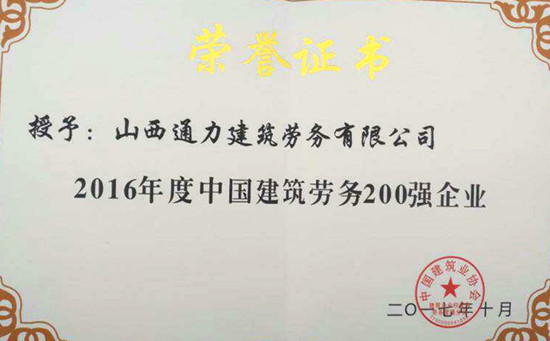 荣誉证书
授予：山西通力建筑劳务有限公司
2016年度中国建筑劳务200强企业
中国建筑业协会
二〇一七年十月